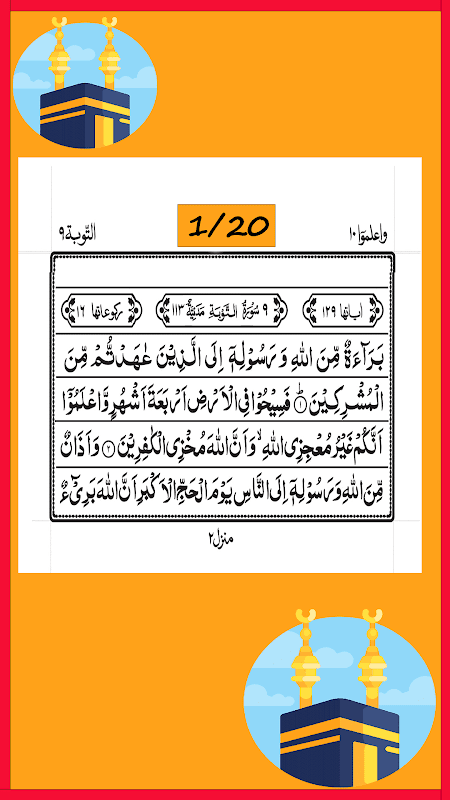 واعلموٓا ۱۰ 1/20 التّوبة ۹
اٰیاتها ۱۲۹ ۹ سُوْرَةُ التَّوْبَةِ مَدَنِیَّةٌ ۱۱۳ رکوعاتها ۱۶
بَرَآءَةٌ مِّنَ اللّٰهِ وَ رَسُوْلِهٖۤ اِلَی الَّذِیْنَ عٰهَدْتُّمْ مِّنَ
الْمُشْرِكِیْنَ ؕ۱ فَسِیْحُوْا فِی الْاَرْضِ اَرْبَعَةَ اَشْهُرٍ وَّ اعْلَمُوْۤا
اَنَّكُمْ غَیْرُ مُعْجِزِی اللّٰهِ ۙ وَ اَنَّ اللّٰهَ مُخْزِی الْكٰفِرِیْنَ ۲ وَ اَذَانٌ
مِّنَ اللّٰهِ وَ رَسُوْلِهٖۤ اِلَی النَّاسِ یَوْمَ الْحَجِّ الْاَكْبَرِ اَنَّ اللّٰهَ بَرِیْٓءٌ
منزل ۲